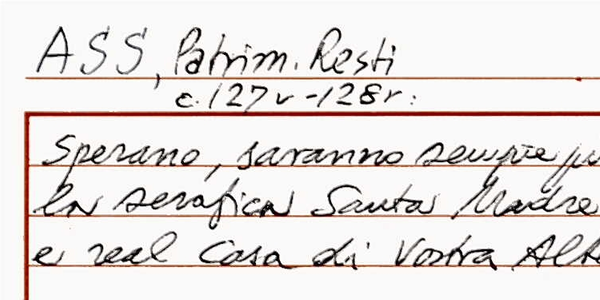 ASS, Patrim. Resti
c. 127v-128r:
Sperano, saranno sempre
la serafica Santa Madre
e real Casa di Vostra